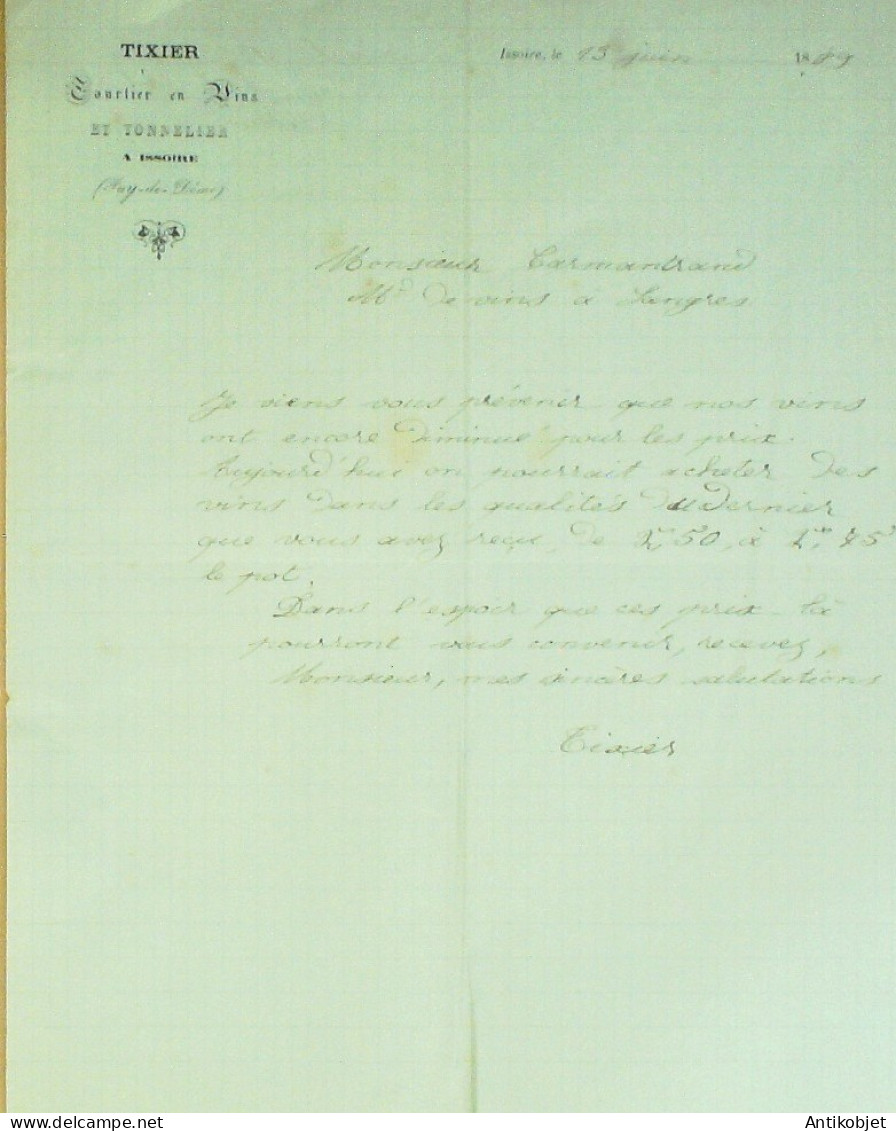 TIXIER
Courtier en Vins
ET TONNELIER
A ISSOIRE
(Puy-de-Dôme)
Issoire, le 13 juin 1889
Monsieur Tarmantrand
Md de vins à Langres
Je viens vous prévenir que nos vins
ont encore diminué pour les prix.
Aujourd'hui on pourrait acheter des
vins dans les qualités du dernier
que vous avez reçu, de 50, à 75
le pot.
Dans l'espoir que ces prix-là
pourront vous convenir, recevez,
Monsieur, mes sincères salutations
Tixier
Antikobjet